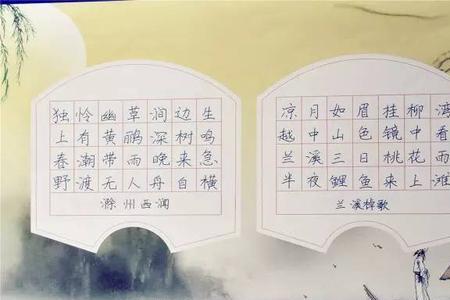 独怜幽草涧边生
上有黄鹂深树鸣
春潮带雨晚来急
野渡无人舟自横
滁州西涧
凉月如眉桂柳湾
越中山色镜中看
兰溪三日桃花雨
半夜鲤鱼来上滩
兰溪棹歌